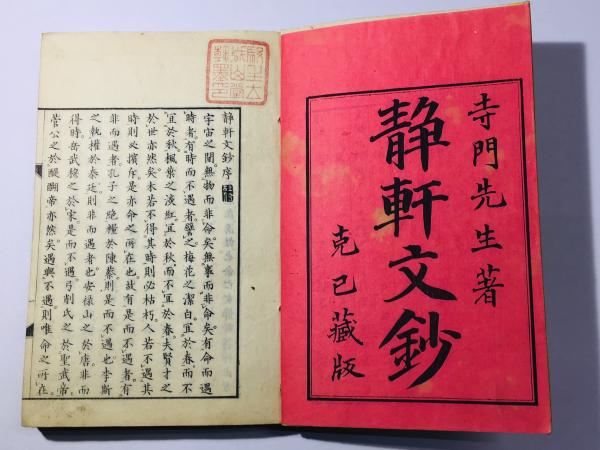 寺門先生著
静軒文鈔
克己藏版
静軒文鈔序
宇宙之閒。無物而非命矣。無事而非命矣。有命而遇
時者。有時而不遇者。譬之梅花之潔白。宜於春而不
宜於秋。楓葉之淡紅。宜於秋而不宜於春。夫賢才之
於世亦然矣。木若不得其時則必枯朽。人若不遇其
時則必擯斥。是亦命之所在也。故有是而不遇者。有
非而遇者。孔子之絶糧於陳蔡。則是而不遇也。李斯
之執權於秦廷。則非而遇者也。安祿山之於唐。非而
得時。岳武穆之於宋。是而不遇。弓削氏之於聖武帝。
菅公之於醍醐帝亦然矣。遇與不遇。則唯命之所在。